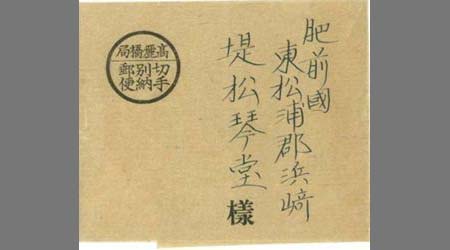 肥前國
東松浦郡浜﨑
堤松琴堂様
高麗橋局
切手別納郵便